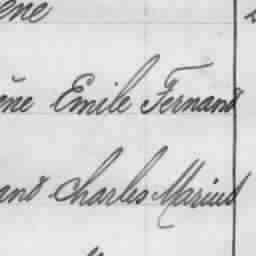 ène
ène Emile Fernand
and Charles Marius